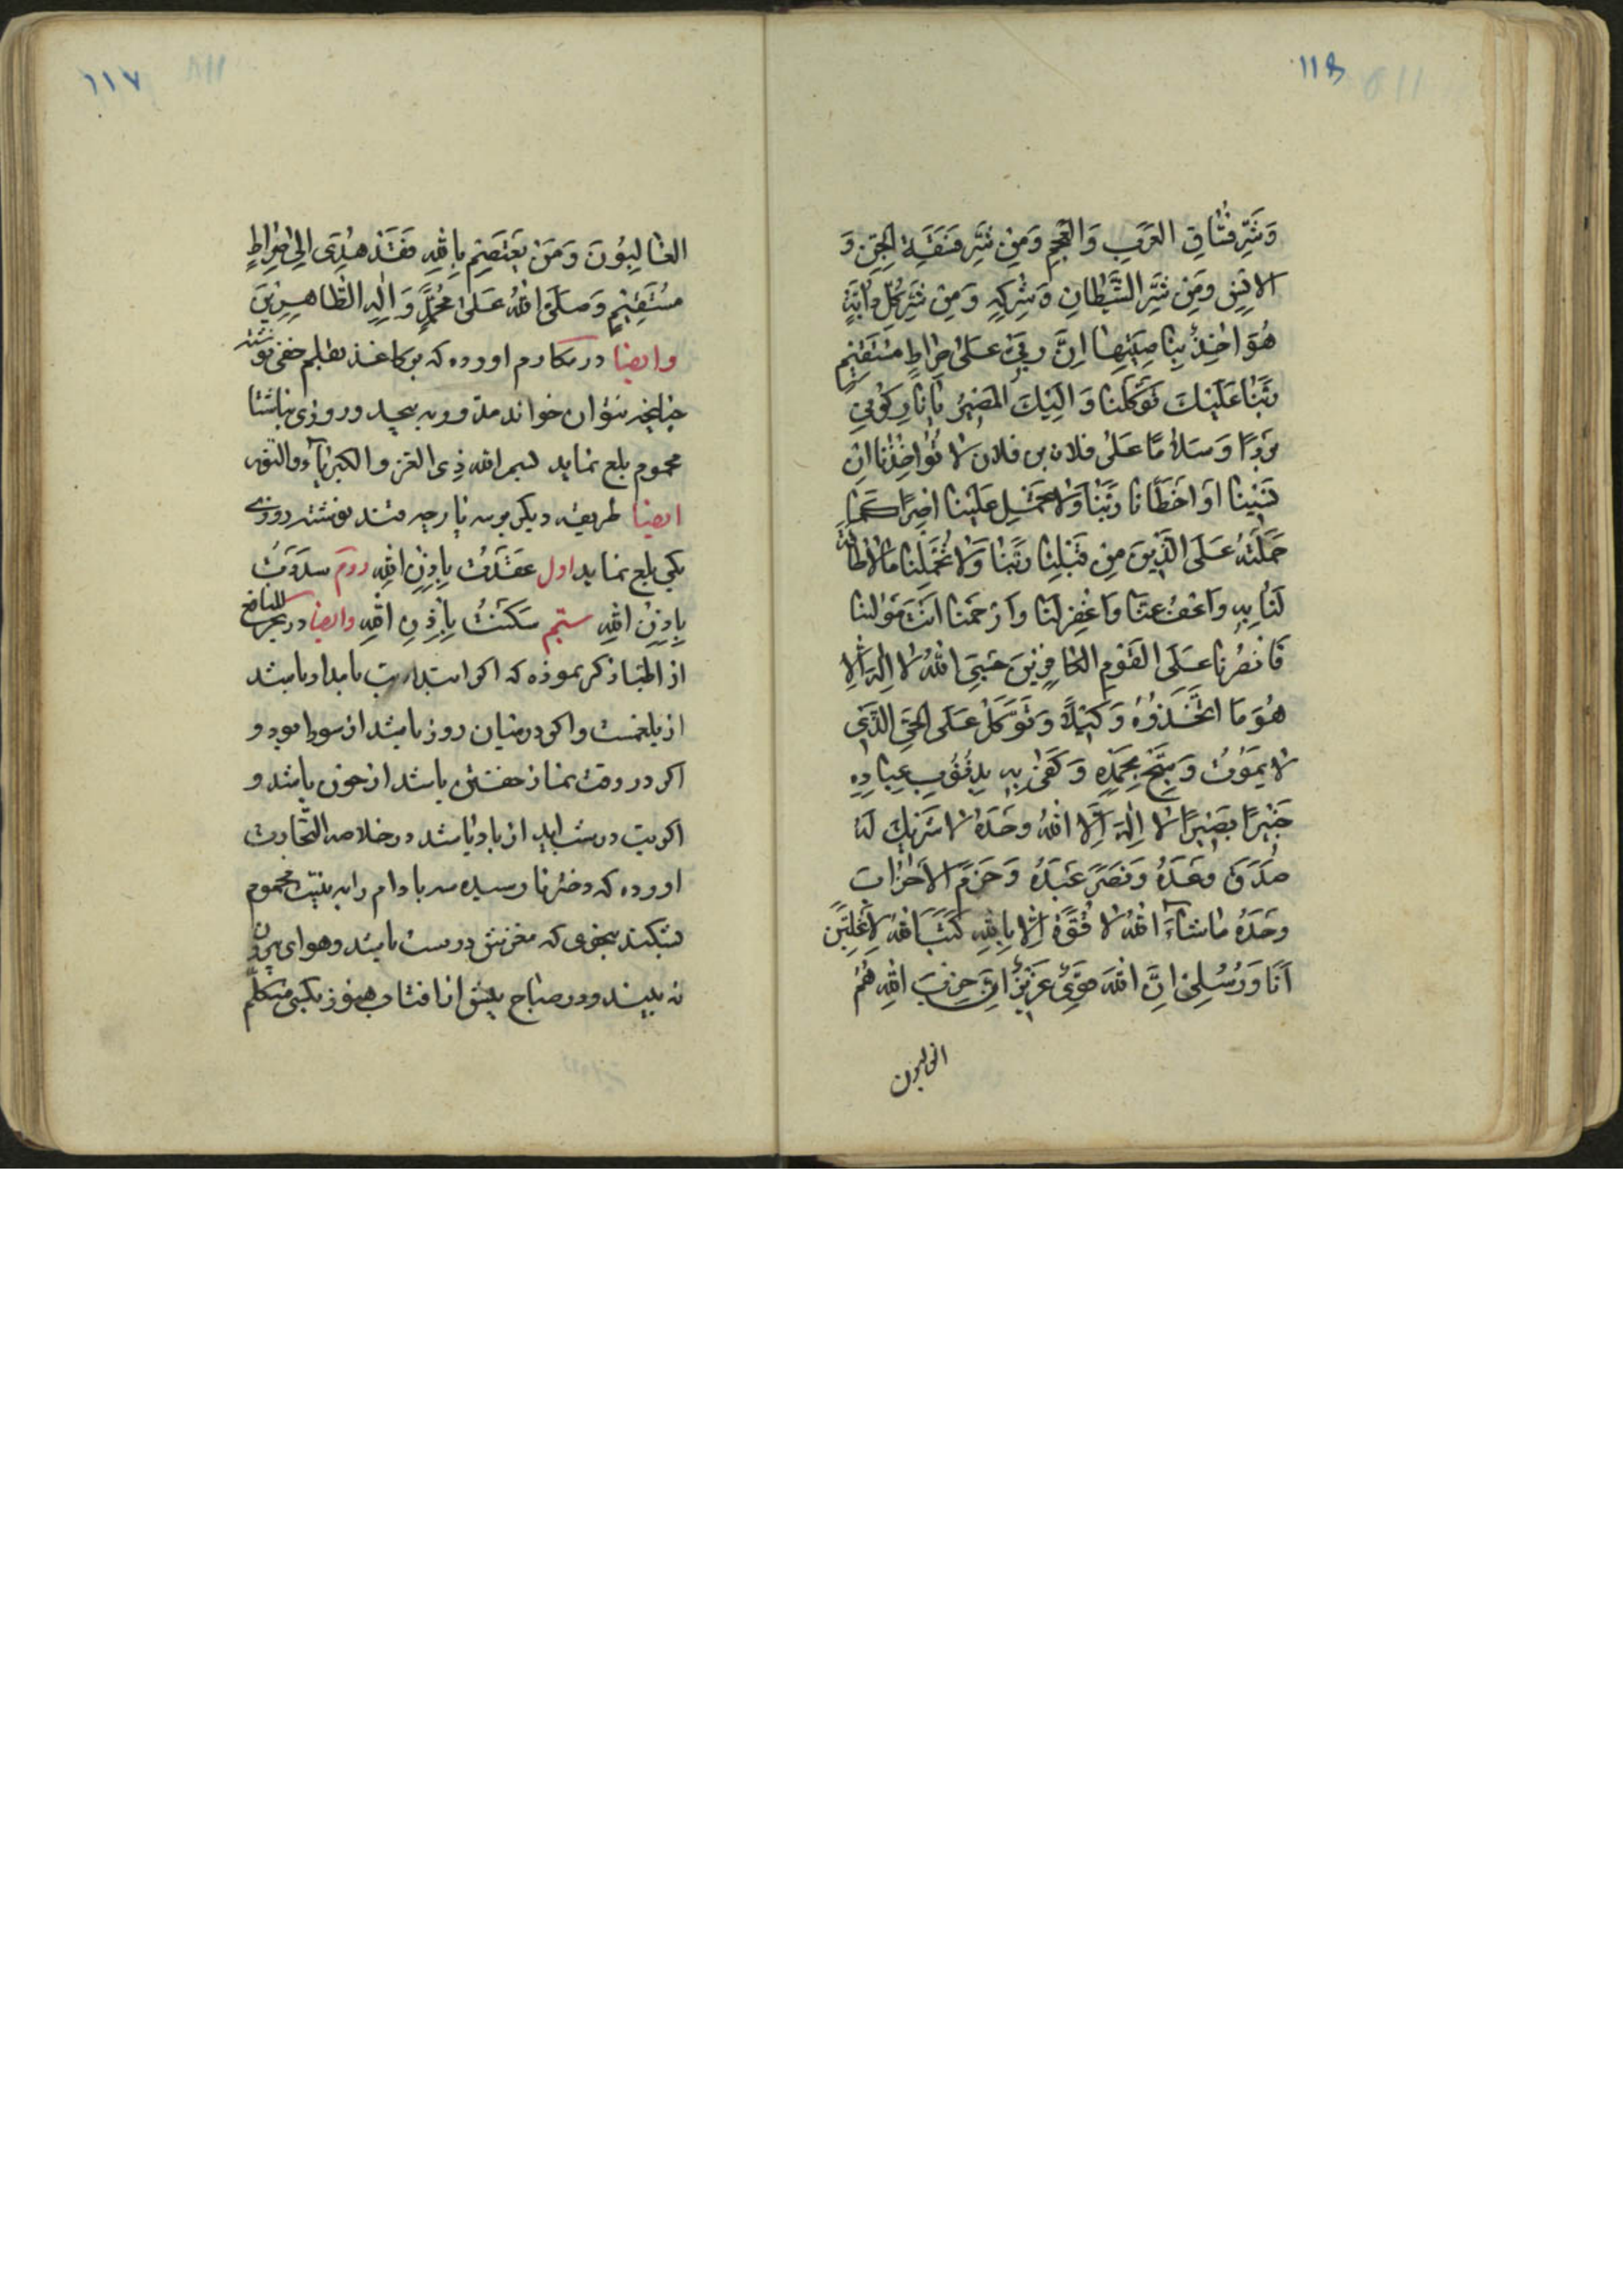 ١١٨
وَشَرِّ فُسّٰاقِ العَرَبِ وَالعَجَمِ وَمِنْ شَرِّ فَسَقَةِ الجِنِّ وَ
الاِنْسِ وَمِنْ شَرِّ الشَّيْطانِ وَشِرْكِهِ وَمِنْ شَرِّ كُلِّ دٰابَّةٍ
هُوَ اٰخِذٌ بِنٰاصِيَتِهٰا اِنَّ رَبّى عَلىٰ صِرٰاطٍ مُسْتَقيمٍ
رَبَّنٰا عَلَيْكَ تَوَكَّلْنٰا وَاِلَيْكَ المَصيرُ يٰا نٰارُ كُوْنى
بَرْدًا وَسَلاٰمًا عَلىٰ فلان بن فلان لاٰ تُؤٰاخِذْنٰا اِنْ
نَسينٰا اَوْ اَخْطَأْنٰا رَبَّنٰا وَلاٰ تَحْمِلْ عَلَيْنٰا اِصْرًا كَمٰا
حَمَلْتَهُ عَلَى الَّذينَ مِنْ قَبْلِنٰا رَبَّنٰا وَلاٰ تُحَمِّلْنٰا مٰا لاٰ طٰاقَةَ
لَنٰا بِهِ وَاعْفُ عَنّٰا وَاغْفِرْ لَنٰا وَارْحَمْنٰا اَنْتَ مَوْلٰينٰا
فَانْصُرْنٰا عَلَى القَوْمِ الكٰافِرينَ حَسْبِىَ اللّٰهُ لاٰ اِلٰهَ اِلاّٰ
هُوَ فَاتَّخِذْوُهُ وَكيلاً وَتَوَكَّلْ عَلَى الحَىِّ الَّذى
لاٰ يَمُوْتُ وَسَبِّحْ بِحَمْدِهِ وَكَفىٰ بِهِ بِذُنُوْبِ عِبٰادِهِ
خَبيرًا بَصيرًا لاٰ اِلٰهَ اِلاَّ اللّٰهُ وَحْدَهُ لاٰ شَريكَ لَهُ
صَدَقَ وَعْدَهُ وَنَصَرَ عَبْدَهُ وَهَزَمَ الاَحْزٰابَ
وَحْدَهُ مٰا شٰآءَ اللّٰهُ لاٰ قُوَّةَ اِلاّٰ بِاللّٰهِ كَتَبَ اللّٰهُ لَاَغْلِبَنَّ
اَنَا وَرُسُلى اِنَّ اللّٰهَ قَوِىٌّ عَزيزٌ اِنَّ حِزْبَ اللّٰهِ هُمُ
الغالبون
١١٧
الغٰالِبُوْنَ وَمَنْ يَعْتَصِمْ بِاللّٰهِ فَقَدْ هُدِىَ اِلىٰ صِرٰاطٍ
مُسْتَقيمٍ وَصَلَّى اللّٰهُ عَلىٰ مُحَمَّدٍ وَاٰلِهِ الطّٰاهِرينَ
وايضا در مكارم اورده كه بر كاغذ بقلم خفى نوشته
چنانچه نتوان خواند مدور به پيچد و روزى ناشتا
محموم بلع نمايد بسم الله ذِى العز و الكبريآء و النور
ايضا طريقه ديكر بر سه پارچه قند نوشته روزى
يكى بلع نمايد اول عَقَدْتُ بِاِذْنِ اللّٰهِ دويم سَدَدْتُ
بِاِذْنِ اللّٰهِ سيّم سَكَنْتُ بِاِذْنِ اللّٰهِ وايضا در بحر المنافع
از اطبا ذكر نموده كه اكر ابتداء تب بامداد باشد
از بلغمست و اكر در ميان روز باشد از سودا بود و
اكر در وقت نماز خفتن باشد از خون باشد و
اكر تب در شب ايد از باد باشد در خلاصه التجارب
اورده كه دختر نارسيده سه بادام را به نيت محموم
بشكند بنحوى كه مغزش درست باشد و هواى بيرون
نه بيند و در صباح پيش از افتاب هنوز بكسى متكلم